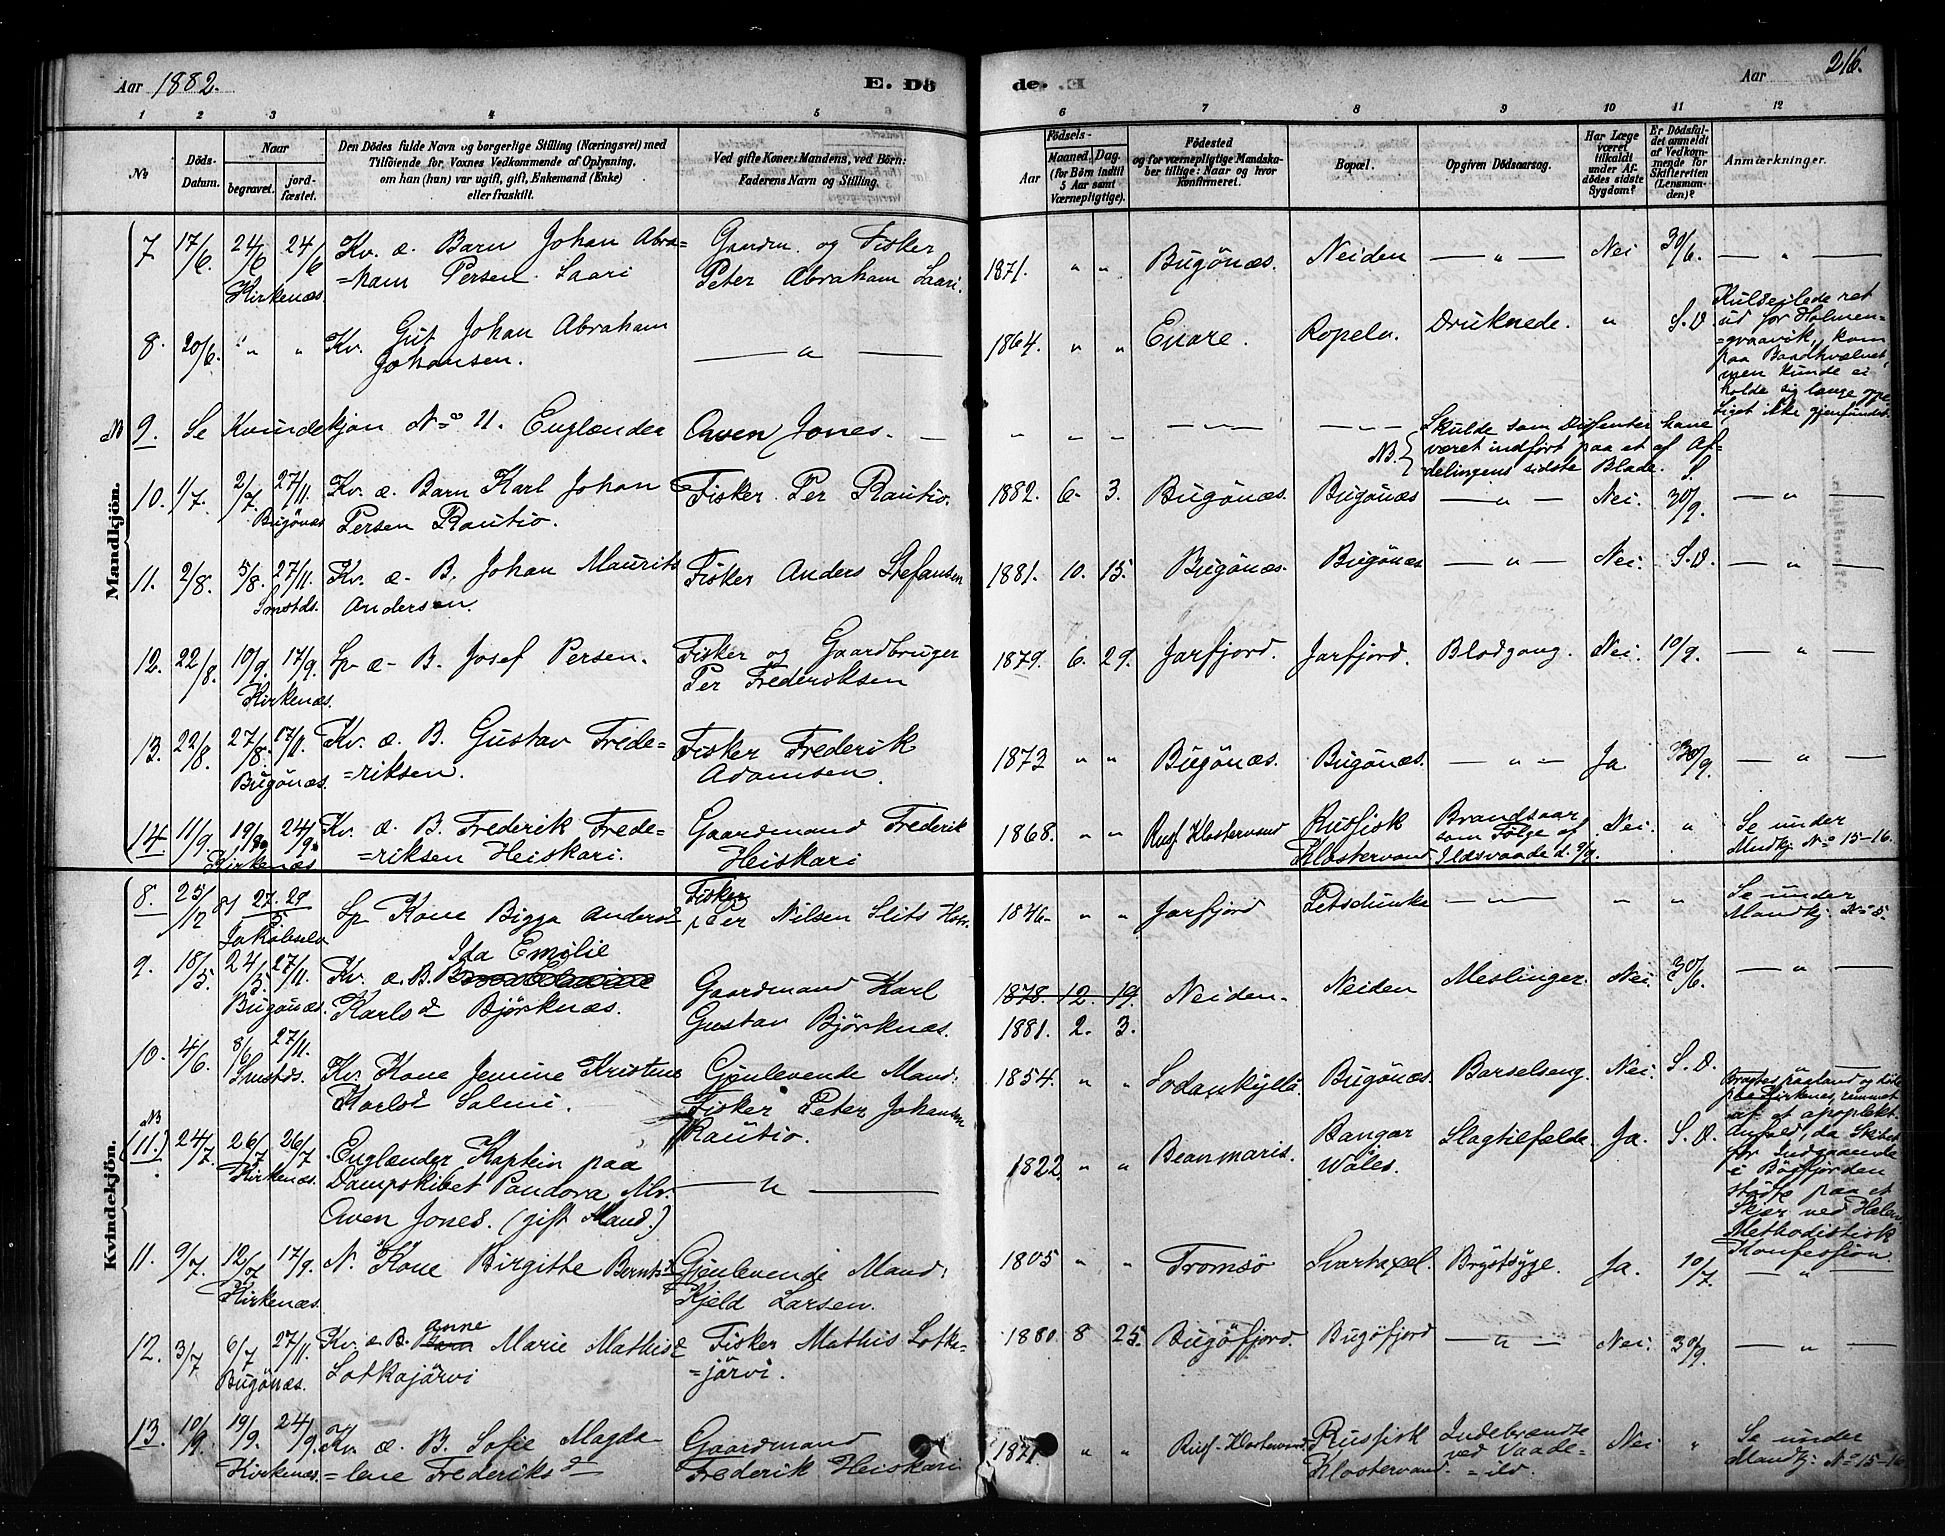 Aar 1882.
E. Dö
de. E
Aar
216.
1 2 3 4 5 6 7 8 9 10 11 12
No
Döds-
Datum.
Naar
begravet.
jord-
fæstet.
Den Dödes fulde Navn og borgerlige Stilling (Næringsvei) med
Tilföiende for Voxnes Vedkommende af Oplysning,
om han (hun) var ugift, gift, Enkemand (Enke)
eller fraskilt.
Ved gifte Koner: Mandens, ved Börn:
Faderens Navn og Stilling.
Födsels-
Aar
Maaned.
Dag.
(for Börn indtil
5 Aar samt
Værnepligtige).
Födested
og for værnepligtige Mandska-
ber tillige: Naar og hvor
konfirmeret.
Bopæl.
Opgiven Dödsaarsag.
Har Læge
været
tilkaldt
under Af-
dödes sidste
Sygdom?
Er Dödsfal-
det anmeldt
af Vedkom-
mende for
Skifteretten
(Lensman-
den)?
Anmærkninger.
Mandkjön.
7 17/6. 24/6 24/6 Kv. æ. Barn Johan Abra= Gaardm. og Fisker
Kirkenæs =ham Persen Saari Peter Abraham Saari. 1871. " " Bugönæs. Neiden — " — Nei 30/6. — " —
8. 20/6. " " Kv. Gut Johan Abraham
Johansen. — " — 1864. " " Enare. Ropelv. Druknede. " S. D.
Kulseilede ret
ud for Holmen=
=graavik, kom
paa Baadhvælvet
men kunde ei
holde sig længe oppe
Liget ikke gjenfundet.
NB 9. Se Kvindekjön No 11. Englænder Owen Jones. — " " " — " — — " —
NB. Skulde som Dissenter have
været indfört paa et af Af-
delingens sidste Blade.
10. 1/7. 2/7 27/11. Kv. æ. Barn Karl Johan Fisker Per Rautio. 1882. 6. 3. Bugönæs. Bugönæs — " — Nei. 30/9. — " —
Bugönæs Persen Rautio.
11. 2/8. 5/8. 27/11. Kv. æ. B. Johan Maurits Fisker Anders Stefansen 1881. 10. 15. Bugönæs. Bugönæs — " — Nei. S. D. — " —
Andersen.
12. 22/8. 10/9. 17/9. Lp. æ. B. Josef Persen. Fisker og Gaardbruger 1879. 6. 29. Jarfjord. Jarfjord. Blodgang. Nei. 10/9. — " —
Kirkenæs. Per Frederiksen
13. 22/8. 27/8. 17/11. Kv. æ. B. Gustav Frede= Fisker Frederik 1873 " " Bugönæs. Bugönæs. — " — Ja 30/9. — " —
Bugönæs. =riksen. Adamsen.
14 11/9. 19/9. 24/9. Kv. æ. B. Frederik Frede= Gaardmand Frederik 1868. " " Rusf. Klostervand Russisk Brandsaar Nei. " Se under
Kirkenæs =riksen Heiskari. Heiskari Klostervand som Følge af Mandkj. No 15-16.
Ildsvaade d. 9/9.
Kvindekjön.
8. 25/12 81 27. 29/5 Lp Kone Bigga Andersd Fisker 1846 " " Jarfjord Petschinke — " — " " Se under
Jakobselv Per Nilsen Mandkj. No 8.
9. 18/5. 24/5. 27/11. Kv. æ. B. Ida Emilie Gaardmand Karl 1878. 12. 19. Neiden. Neiden Meslinger. Nei. 30/6. — " —
Bugönæs. Karlsd Björknæs. Gustav Björknæs. 1881. 2. 3.
10. 4/6. 8/6 27/11. Kv. Kone Jemine Kristine Gjenlevende Mand: 1854. " " Sodankylä. Bugönæs. Barselseng. Nei. S. D.
Karlsd Salmi. Fisker Peter Johansen
Rautio.
NB (11.) 24/7. 26/7 26/7. Englænder Kaptein paa — " — 1822 " " Beanmaris. Bangor Slagtilfælde Ja. S. D.
Kirkenæs. Dampskibet Pandora Mr. Wales.
Owen Jones. (gift Mand.)
Bragtes paa Land og döde
paa Kirkenæs, rammet
af et apoplekt.
Anfald, da Skibet
for Indgaaende
i Bögfjorden
stödte paa et
Skjær ved
Methodistisk
Konfession.
11. 9/7. 12/7 17/9. N. Kone Birgitte Berntsd Gjenlevende Mand: 1805 " " Tromsö Svartaxel. Brystsyge. Ja. 10/7. — " —
Kirkenæs. Kjeld Larsen.
12. 3/7 6/7 27/11. Kv. æ. B. Barn Anne Marie Mathisd Fisker Mathis Lotka= 1880 8 25. Bugöfjord. Bugöfjord — " — Nei. 30/9. — " —
Bugönæs. Lotkajärvi =järvi.
13. 10/9. 19/9. 24/9. Kv. æ. B. Sofie Magda- Gaardmand 1871. " " Rusf. Klostervand Russisk Indebrændte Nei " Se under
Kirkenæs. =lene Frederiksd Frederik Heiskari Klostervand. ved Vaade= Mandkj: No 15-16
=ild.